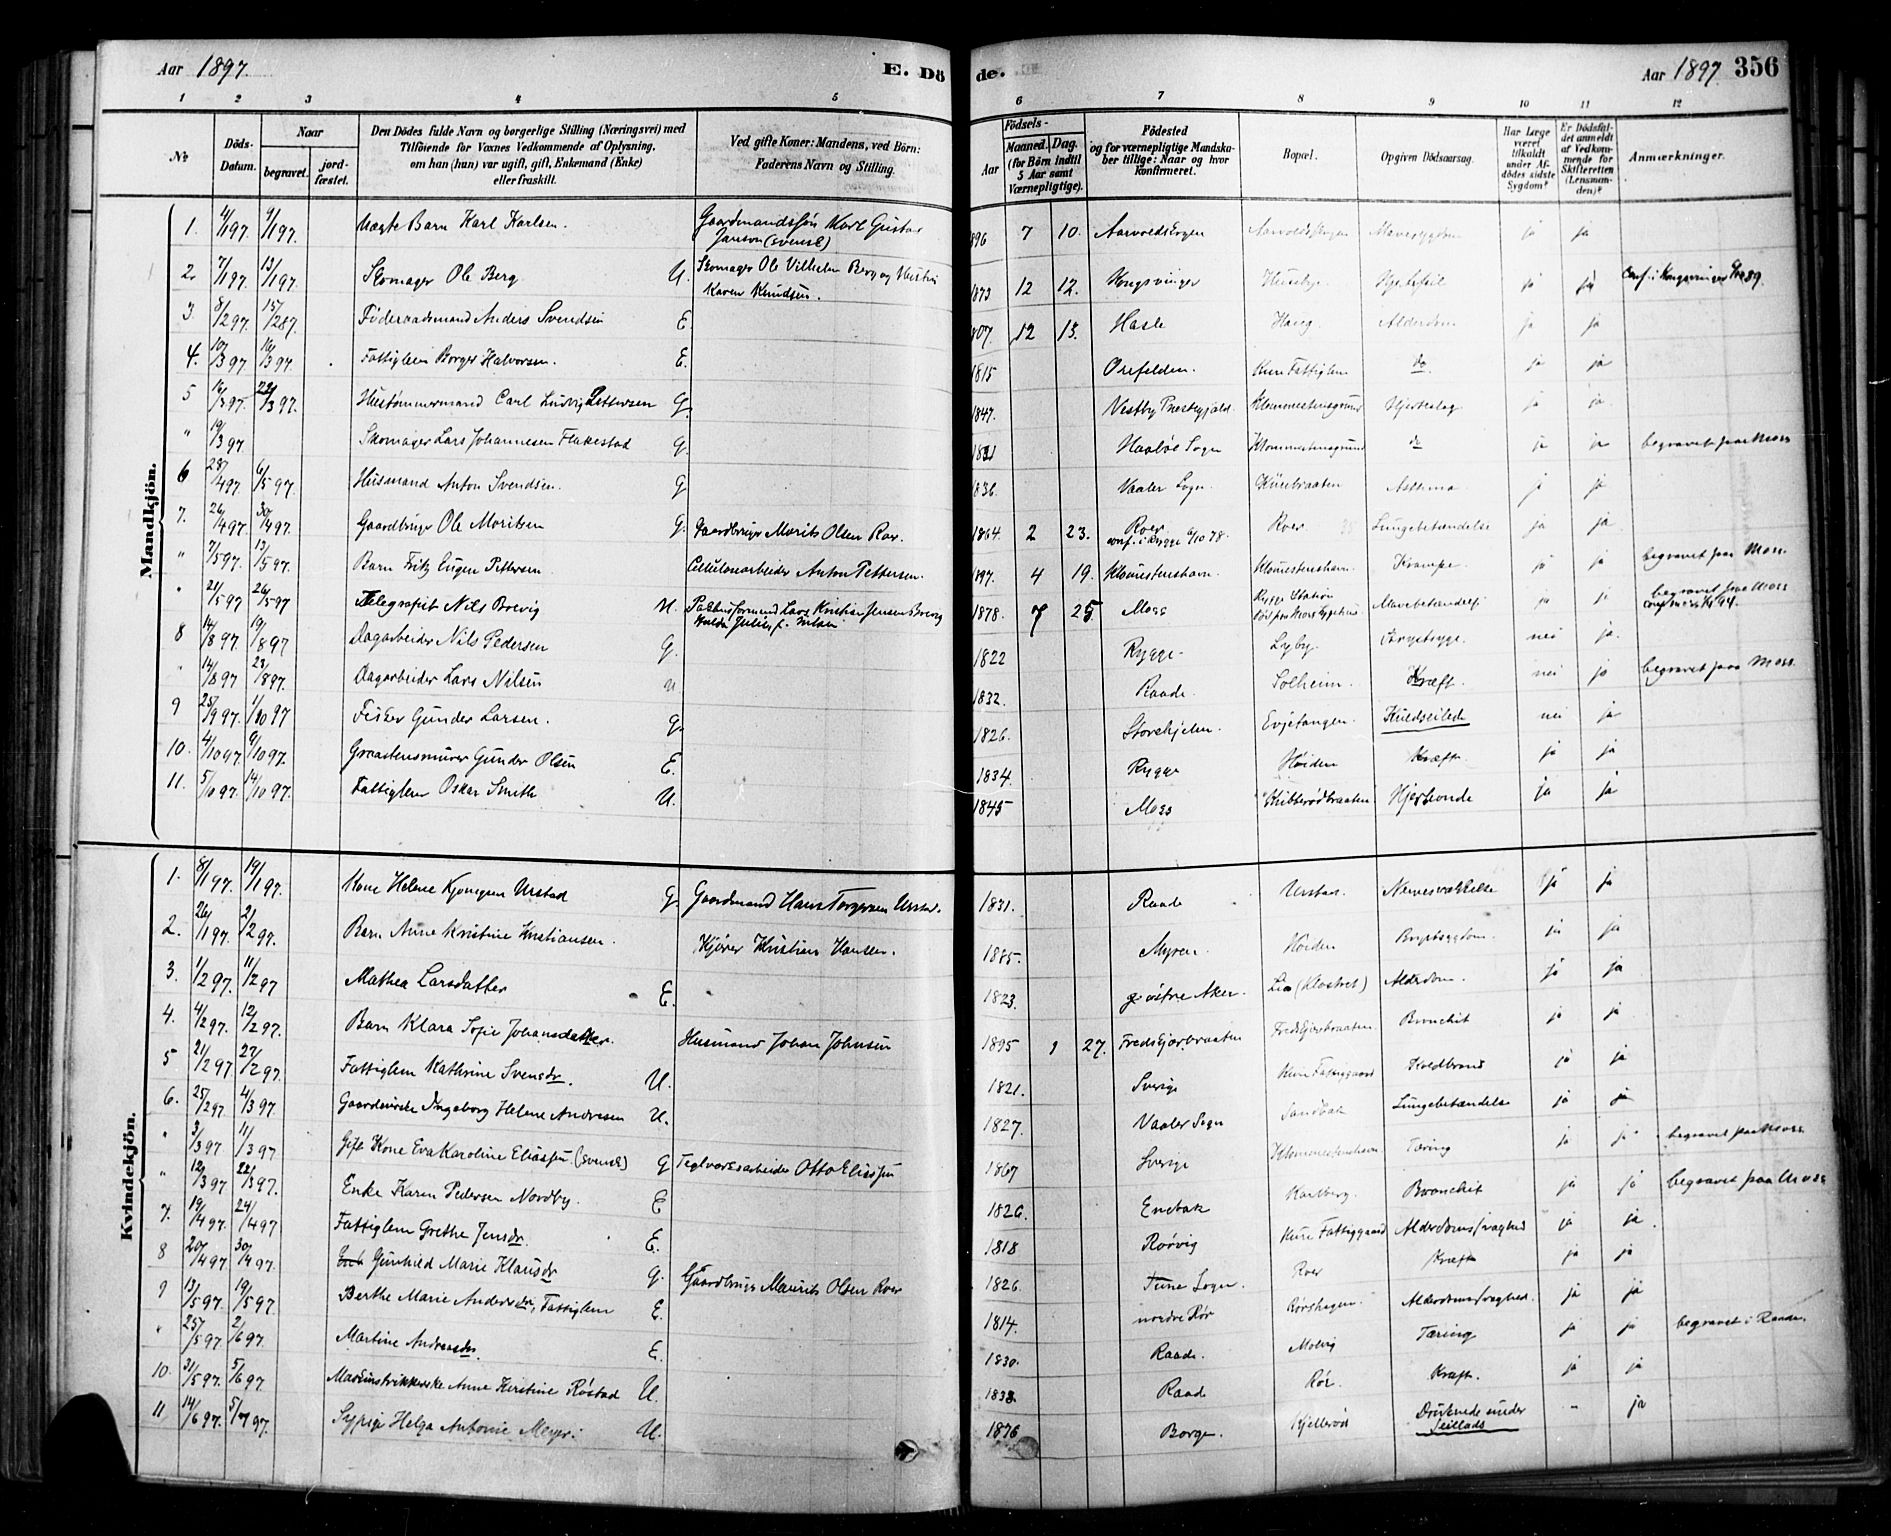 Aar 1897.
E. Døde.
Aar 1897. 356
1 2 3 4 5 6 7 8 9 10 11 12
No
Döds-Datum.
Naar
begravet.
jordfæstet.
Den Dödes fulde Navn og borgerlige Stilling (Næringsvei) med Tilföiende for Voxnes Vedkommende af Oplysning, om han (hun) var ugift, gift, Enkemand (Enke) eller fraskilt.
Ved gifte Koner: Mandens, ved Börn: Faderens Navn og Stilling.
Födsels-
Aar
Maaned. Dag.
(for Börn indtil 5 Aar samt Værnepligtige).
Födested og for værnepligtige Mandskaber tillige: Naar og hvor konfirmeret.
Bopæl.
Opgiven Dödsaarsag.
Har Læge været tilkaldt under Afdödes sidste Sygdom?
Er Dödsfaldet anmeldt af Vedkommende for Skifteretten (Lensmanden)?
Anmærkninger.
Mandkjön.
1. 4/1 97. 9/1 97. Uægte Barn Karl Karlsen. Gaardmandssøn Karl Gustav Janson (svensk) 896 7 10. Aarvoldskogen Aarvoldskogen Mavesygdom ja ja
2. 7/1 97. 13/1 97. Skomager Ole Berg U. Skomager Ole Vilhelm Berg og Hustru Karen Knudsen. 1873 12 12. Kongsvinger Huseby Hjertefeil ja ja Conf. i Kongsvinger 89.
3. 8/2 97. 15/2 87. Föderaadsmand Anders Svendsen E 807 12 13. Hasle Haug. Alderdom ja ja
4. 10/3 97 16/3 97. Fattiglem Borger Halvorsen. E. 1815 Orefelden. Kure Fattiglem do ja ja
5 16/3 97. 22/3 97. Hustømmermand Carl Ludvig Pettersen G. 1847. Vestby Præstegjæld. Klommestensgrund Hjerteslag ja ja
" 19/3 97 Skomager Lars Johannesen Flakestad G. Haabøl Sogn Klommestensgrund do ja ja begravet paa Moss
6 28/4 97. 6/5 97. Husmand Anton Svendsen. G 1836. Vaaler Sogn. Asthma ja ja
7. 26/4 97. 30/4 97. Gaardbruger Ole Moritsen G. Gaardbruger Morits Olsen Roer. 1864 2 23. Roer conf. i Rygge 6/10 78. Roer Lungebetændelse ja ja
" 7/5 97 13/5 97. Barn Fritz Eugen Pettersen Cellulosearbeider Anton Pettersen. 1897. 4 19. Klomestenshavn. Klomestenshavn. Krampe ja ja begravet paa Moss.
" 21/5 97 26/5 97 Telegrafist Nils Brevig U. Pakhusformand Lars Kristian Jensen Brevig 1878. 7 25. Moss Rygge Station Mavebetændelse ja ja begravet paa Moss
8 14/8 97. 19/8 97 Dagarbeider Nils Pedersen G. 1822 Rygge Lyby. Brystsyge. nei ja.
" 14/8 97 23/8 97. Dagarbeider Lars Nilsen U 1832. Raade. Solheim. Kræft. nei ja begravet paa Moss.
9 25/9 97. 1/10 97 Fisker Gunder Larsen. G. 1826. Storehjelen. Evjetangen. Kuldseilede nei ja
10. 4/10 97. 9/10 97. Graastensmurer Gunder Olsen E. 1834. Rygge Høiden Kræft ja ja
11. 5/10 97. 14/10 97. Fattiglem Oskar Smith U. 1845 Moss Kibberødbraaten Hjertonde ja ja
Kvindekjön.
1. 8/1 97. 19/1 97. Kone Helene Urstad G. Gaardmand Hans Torgersen Urstad. 1831. Raade Urstad. Nervesvækkelse ja ja
2. 26/1 97. 2/2 97. Barn Anne Kristine Kristiansen. Kjører Kristian Hansen. 1885. Myren Høiden Brystsygdom. ja ja
3. 1/2 97. 11/2 97 Mathea Larsdatter E. 1823. østre Aker. Lia (Klostret) Alderdom. ja ja
4. 4/2 97. 12/2 97. Barn Klara Sofie Johansdatter. Husmand Johan Johnsen 1895 1 27. Fredskjørbraaten Fredskjørbraaten Bronchit ja ja
5 21/2 97 27/2 97. Fattiglem Kathrine Svensdr. U. 1821. Sverige Kure Fattiggaard Koldbrand ja ja
6. 25/2 97. 4/3 97. Gaarderske Ingeborg Helene Andresen U. 1827. Vaaler Sogn Sandbak Lungebetændelse ja ja
" 3/3 97 11/3 97. Gift Kone Eva Karoline Eliassen (svensk) G Teglværksarbeider Otto Eliassen 1867 Sverige Klommestenshavn Tæring ja ja begravet paa Moss.
" 12/3 97 22/3 97. Enke Karen Pedersen Nordby. E 1826. Enebak Karlberg. Bronchit ja ja begravet paa Moss
7. 19/4 97. 24/4 97 Fattiglem Grethe Jensdr. E. 1818 Roavig Kure Fattiggaard Alderdomssvaghed ja ja.
8 20/4 97 30/4 97. Gunhild Marie Klausdr G. Gaardbruger Maurits Olsen Roer 1826 Tune Sogn. Roer Kræft ja ja
9 13/5 97. 19/5 97. Berthe Marie Andersdr, Fattiglem E. 1814. nordre Rør Rørshagen. Alderdomssvaghed. ja ja
" 25/5 97 2/6 97. Martine Andreasdr. E. 1830. Raade. Molvig Tæring ja ja begravet i Raade.
10. 31/5 97. 5/6 97 Maskinstrikkerske Anne Kirstine Røstad U. 1838. Raad Rør. Kræft. ja ja
11 14/6 97. 5/7 97. Sypige Helga Antonie Meyer. U. 1876 Borge. Kjellerød Druknede under Seillads - ja